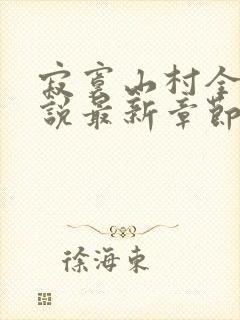 寂寞山村全
説最新章節
徐海東